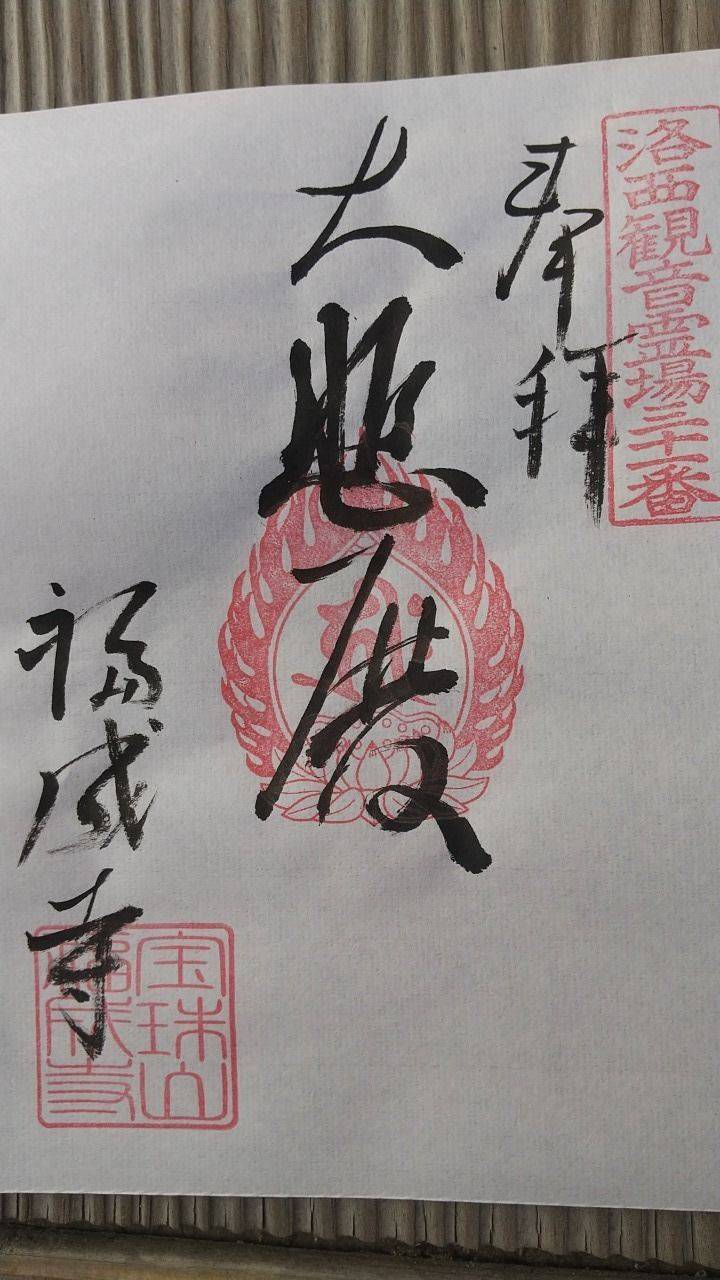 洛西観音霊場三十一番
奉拝
大悲殿
福成寺
宝珠山
福成寺